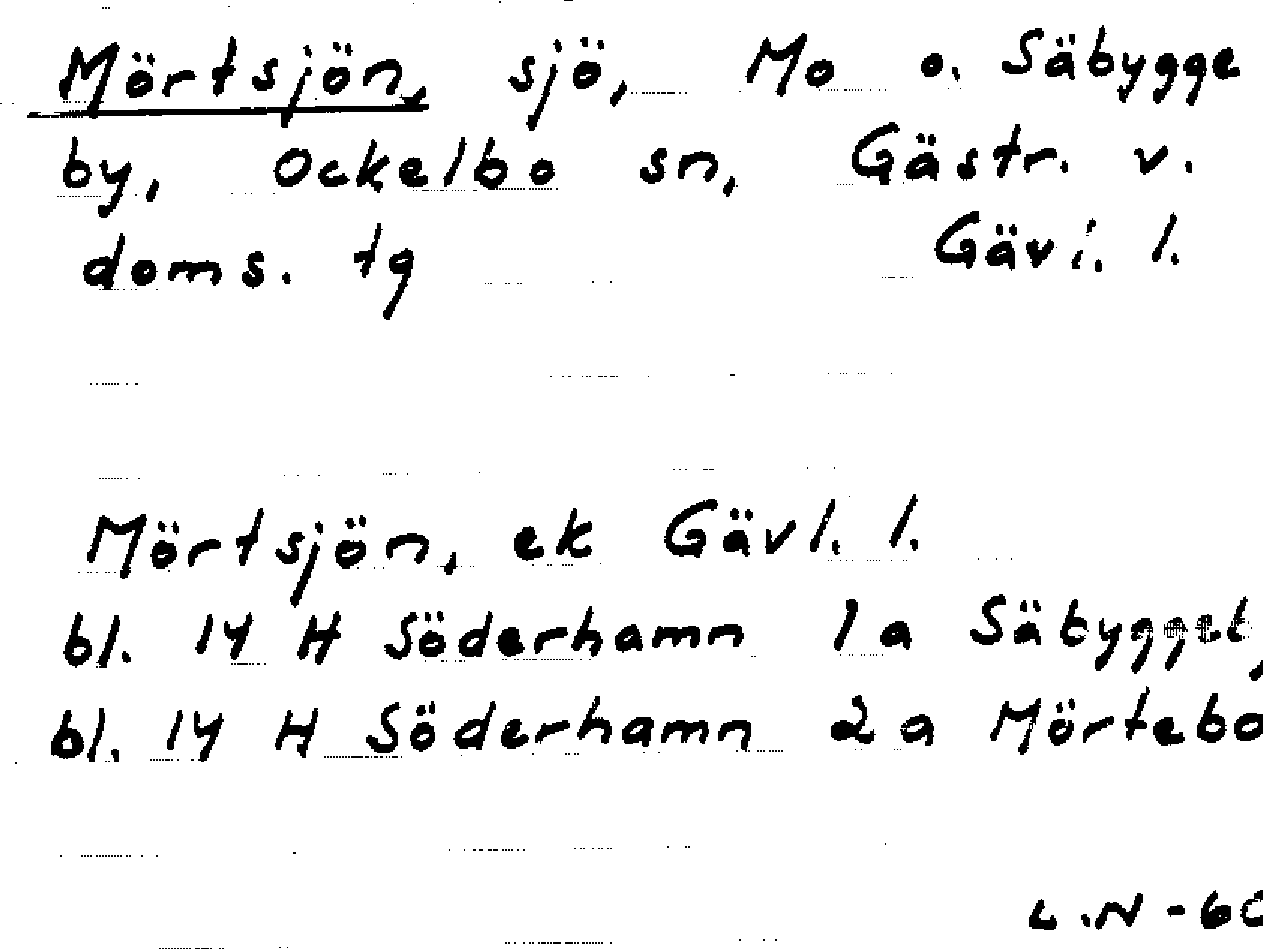 Mörtsjön, sjö, Mo o. Säbygge
by, Ockelbo sn, Gästr. v.
doms. tg Gävl. l.
Mörtsjön, ek Gävl. l.
bl. 14 H Söderhamn 1a
bl. 14 H Söderhamn 2a Mörtebo
L.N -60